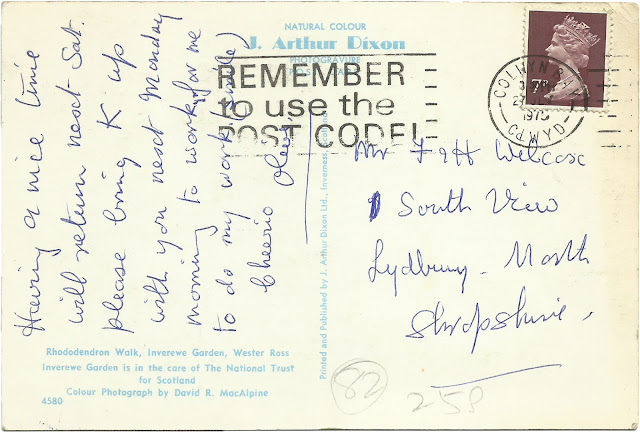 NATURAL COLOUR
J. Arthur Dixon
PHOTOGRAVURE
REMEMBER
to use the
POST CODE!
COLWYN BAY
1975
CLWYD
7P
Having a nice time
will return next Sat.
please bring K up
with you next Monday
morning to work (for me
to do my work smile)
Cheerio Olwen
Mr F & H Wilcox
1 South View
Lydbury - North
Shropshire,
Printed and Published by J. Arthur Dixon Ltd., Inverness, Scotland
Rhododendron Walk, Inverewe Garden, Wester Ross
Inverewe Garden is in the care of The National Trust
for Scotland
Colour Photograph by David R. MacAlpine
4580
82
258